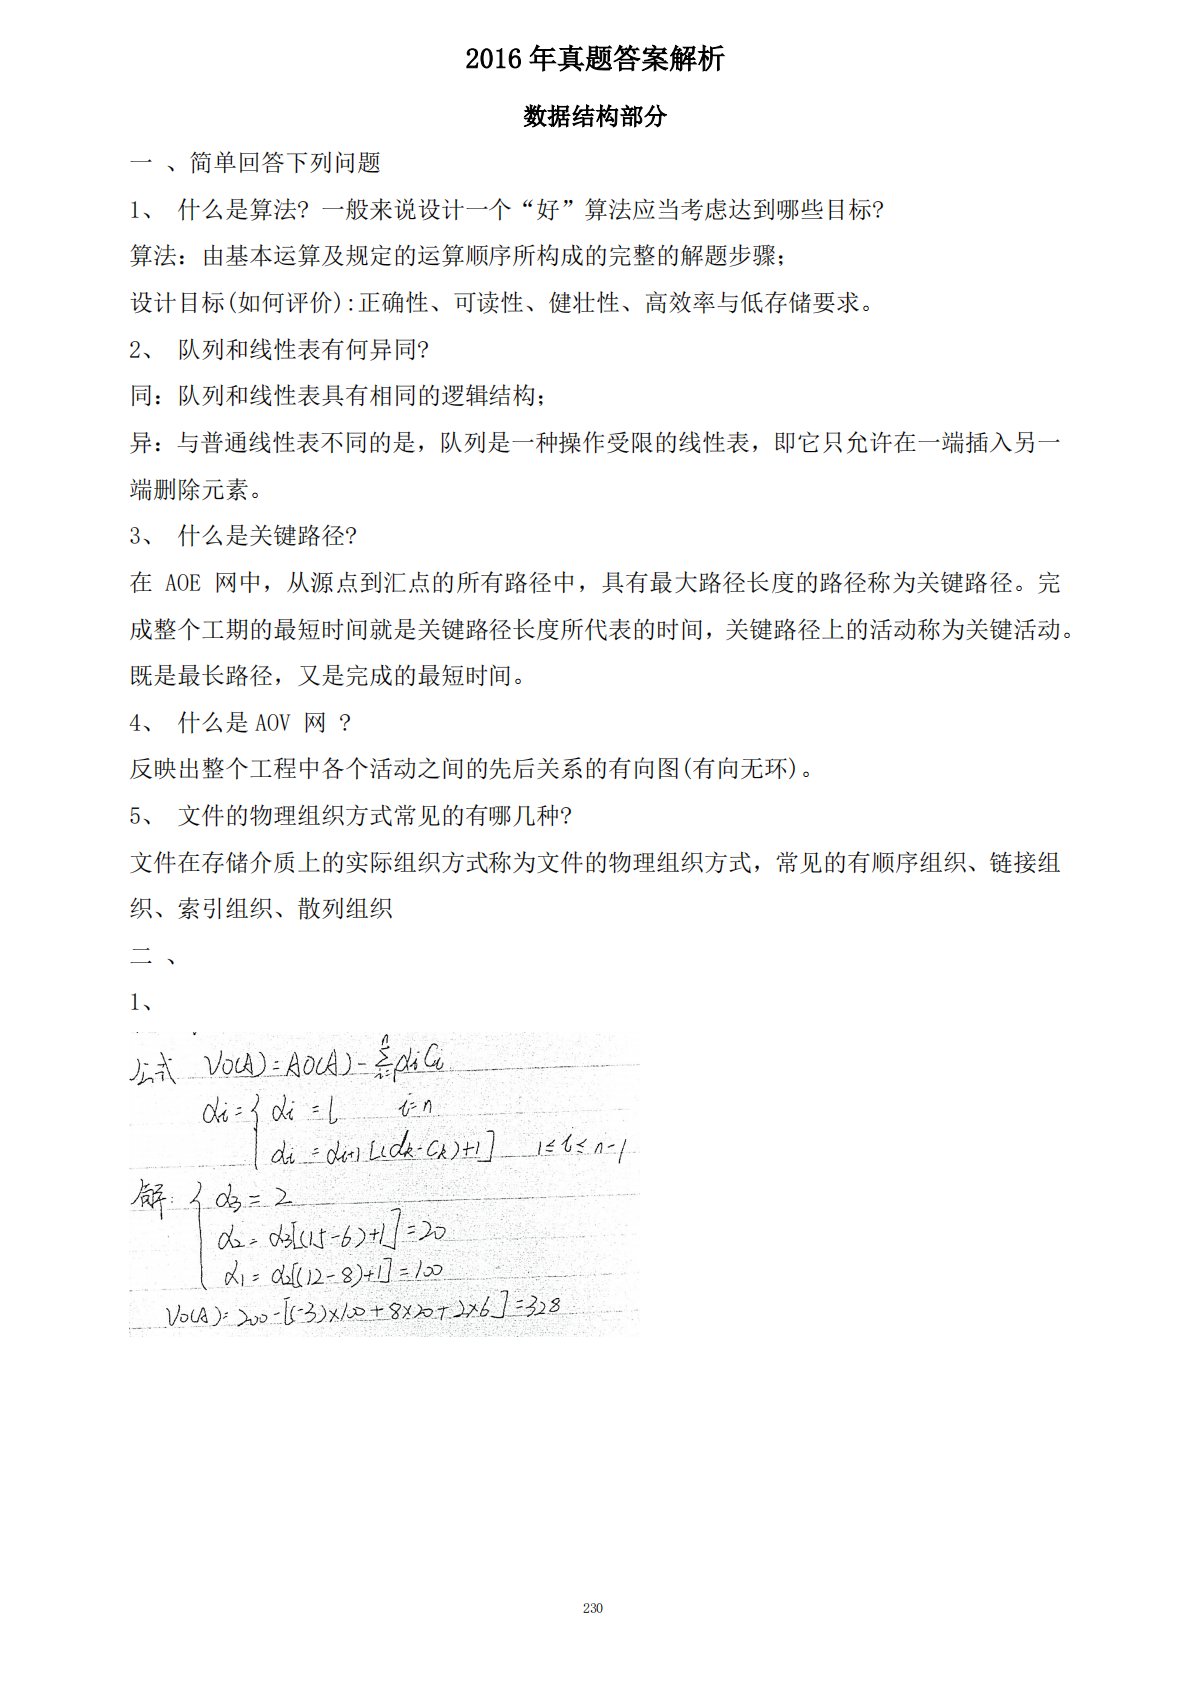 2016 年真题答案解析
数据结构部分
一 、简单回答下列问题
1、 什么是算法? 一般来说设计一个“好”算法应当考虑达到哪些目标?
算法: 由基本运算及规定的运算顺序所构成的完整的解题步骤;
设计目标(如何评价):正确性、可读性、健壮性、高效率与低存储要求。
2、 队列和线性表有何异同?
同: 队列和线性表具有相同的逻辑结构;
异: 与普通线性表不同的是, 队列是一种操作受限的线性表, 即它只允许在一端插入另一
端删除元素。
3、 什么是关键路径?
在 AOE 网中, 从源点到汇点的所有路径中, 具有最大路径长度的路径称为关键路径。完
成整个工期的最短时间就是关键路径长度所代表的时间, 关键路径上的活动称为关键活动。
既是最长路径, 又是完成的最短时间。
4、 什么是 AOV 网 ?
反映出整个工程中各个活动之间的先后关系的有向图(有向无环)。
5、 文件的物理组织方式常见的有哪几种?
文件在存储介质上的实际组织方式称为文件的物理组织方式, 常见的有顺序组织、链接组
织、索引组织、散列组织
二 、
1、
公式 VO(A)=AO(A)-∑ⁿᵢ₌₁αiCi
αi={ αi=L i=n
αi=αi+1[(dk-Ck)+1] 1≤i≤n-1
解: { α3=2
α2=α3[(15-6)+1]=20
α1=α2[(12-8)+1]=100
VO(A)=200-[(-3)×100+8×20+2×6]=328
230